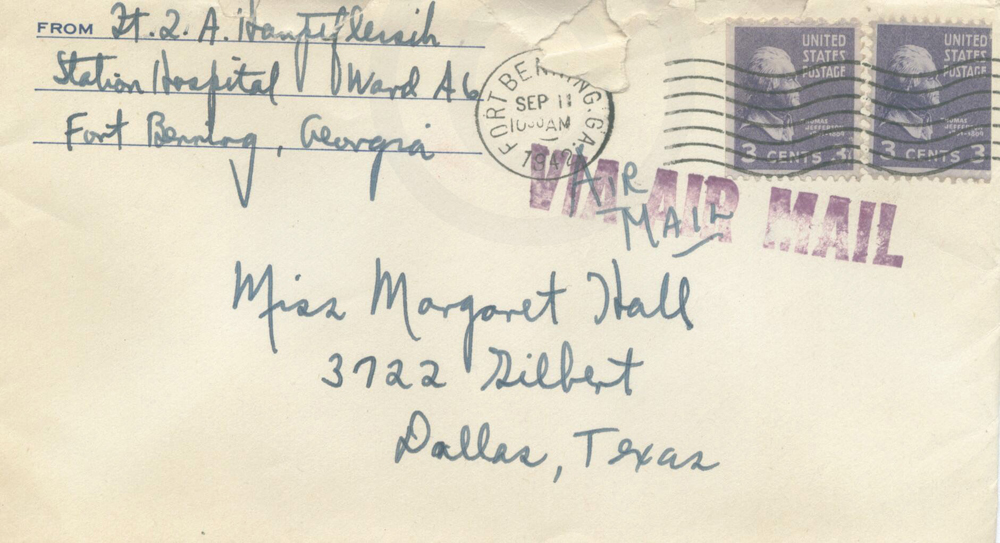 FROM Lt. L. A.
Station Hospital Ward A6
Fort Benning, Georgia
FORT BENNING, GA.
SEP 11
AM
1942
UNITED
STATES
POSTAGE
THOMAS
JEFFERSON
3 CENTS 3
UNITED
STATES
POSTAGE
THOMAS
JEFFERSON
3 CENTS 3
VIA AIR MAIL
AIR
MAIL
Miss Margaret Hall
3722 Gilbert
Dallas, Texas